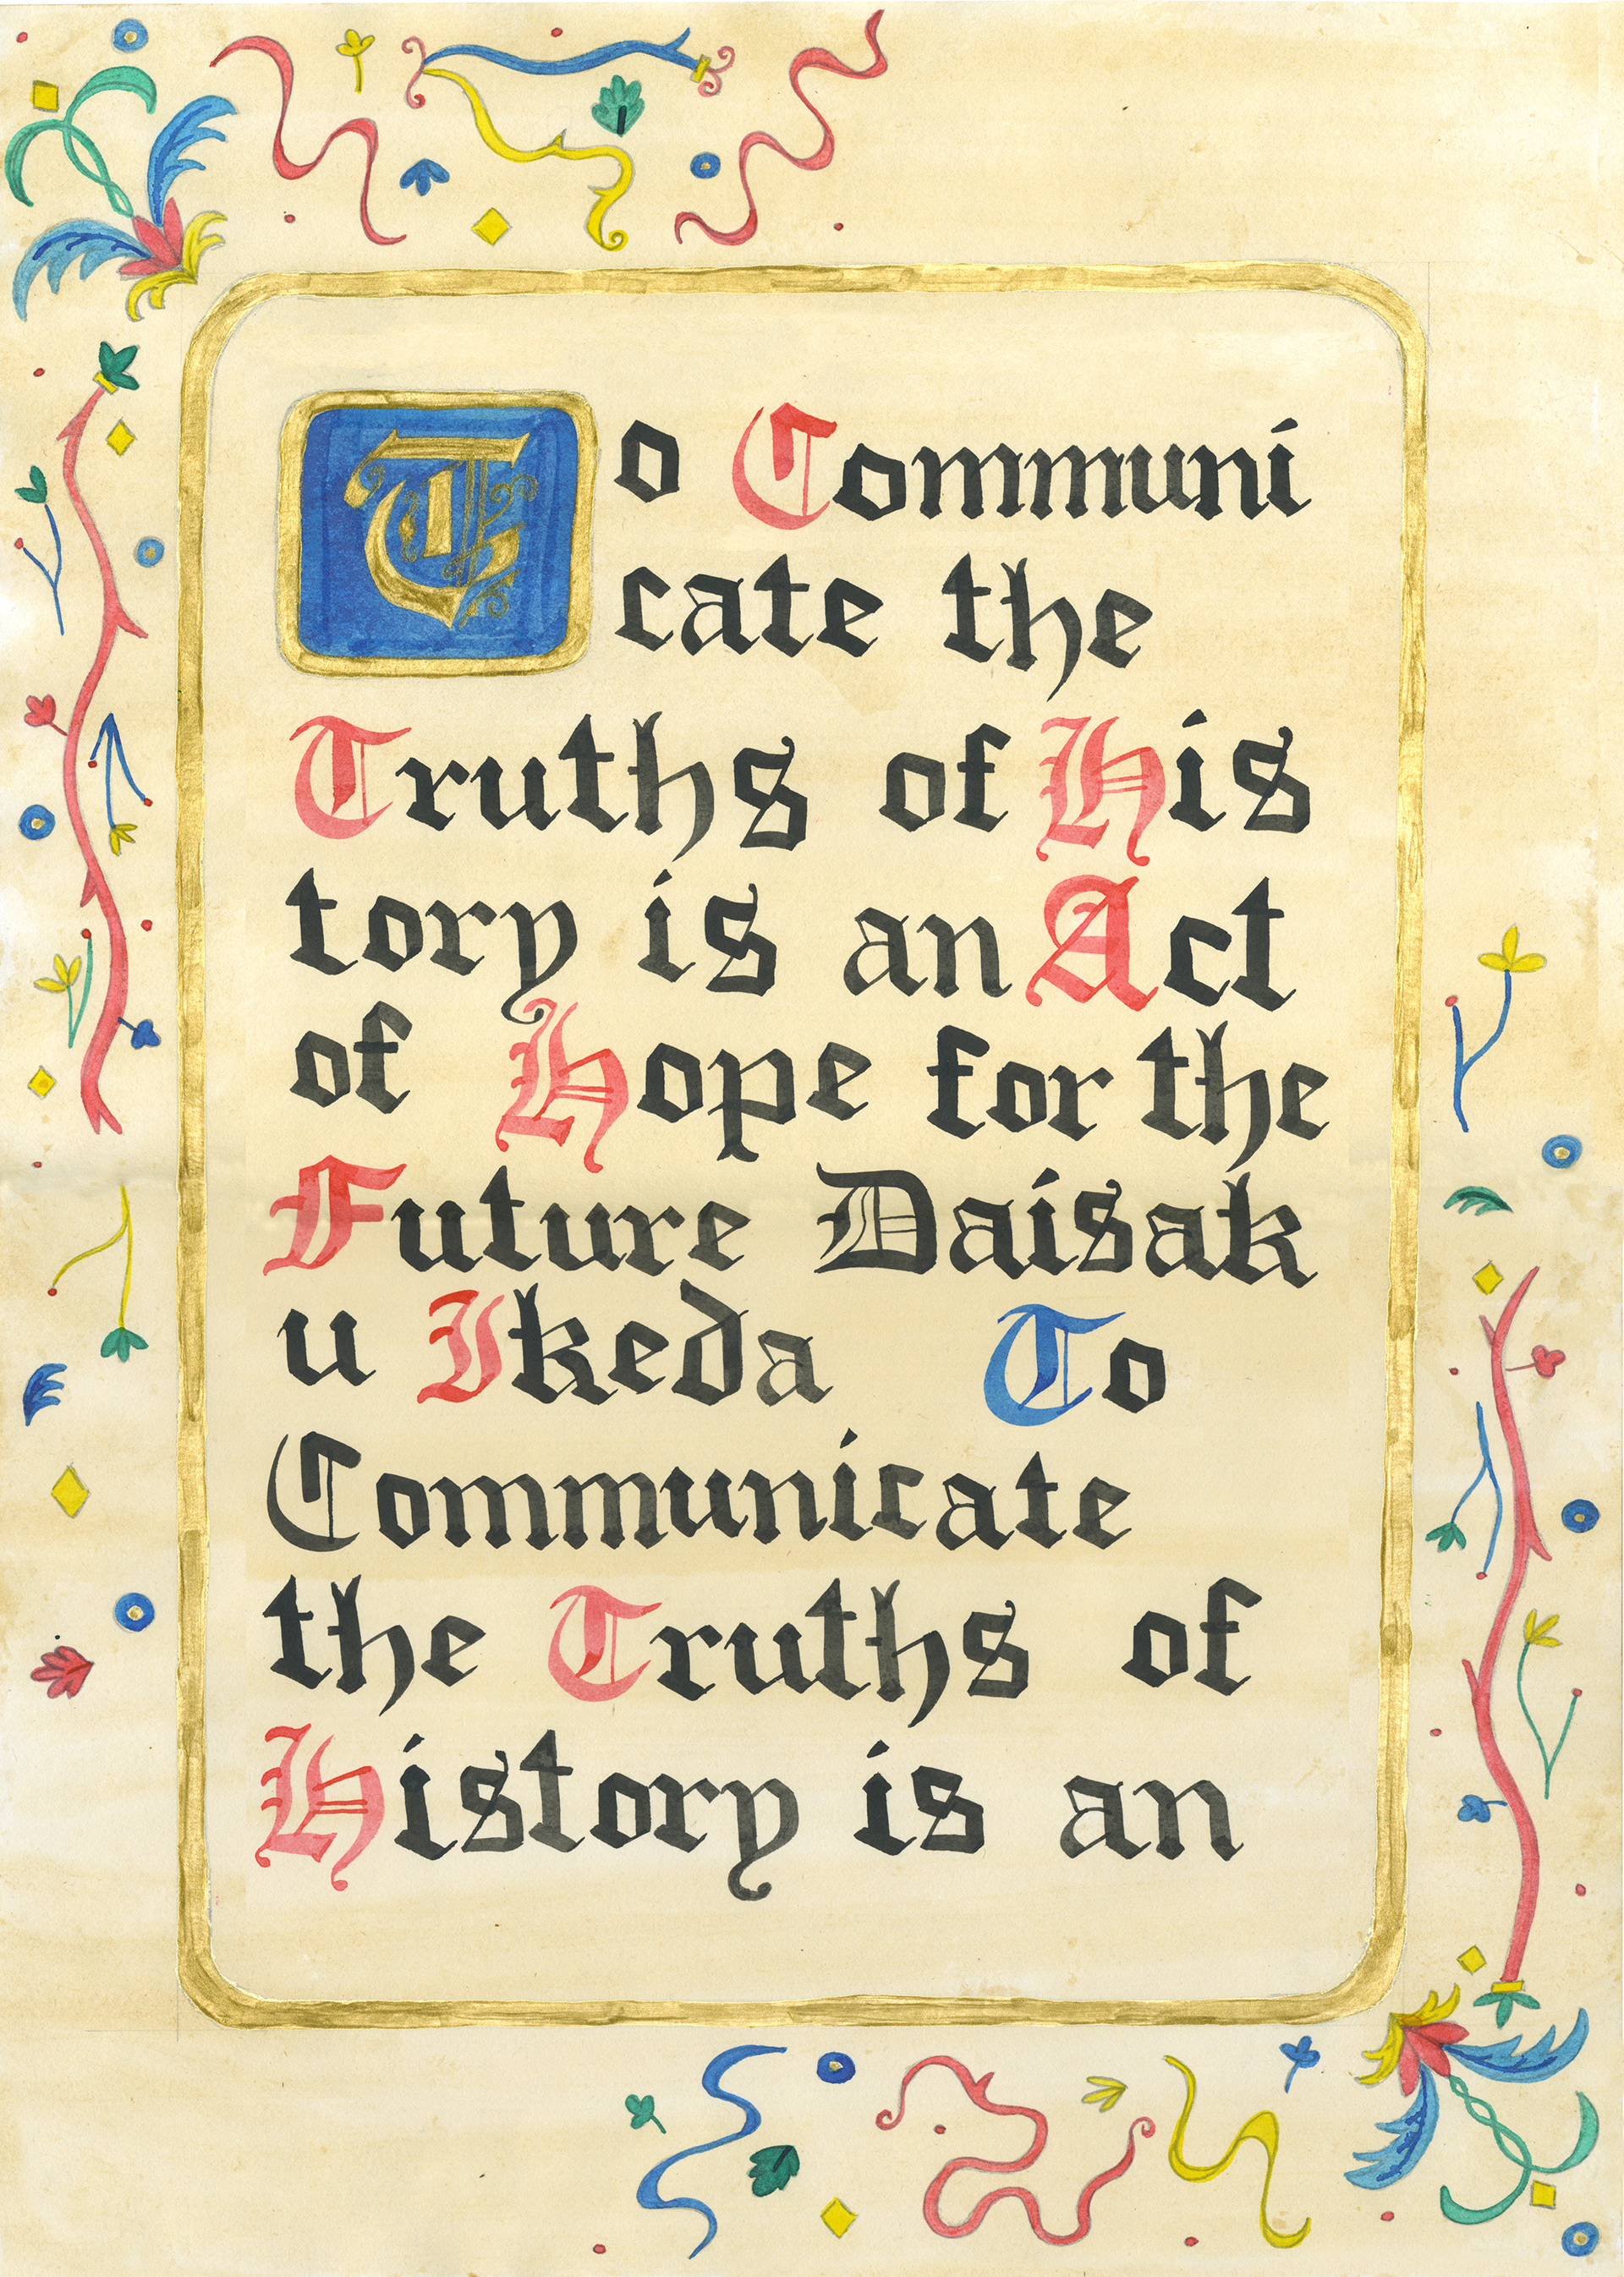 To Communi
cate the
Truths of His
tory is an Act
of Hope for the
Future Daisak
u Ikeda To
Communicate
the Truths of
History is an